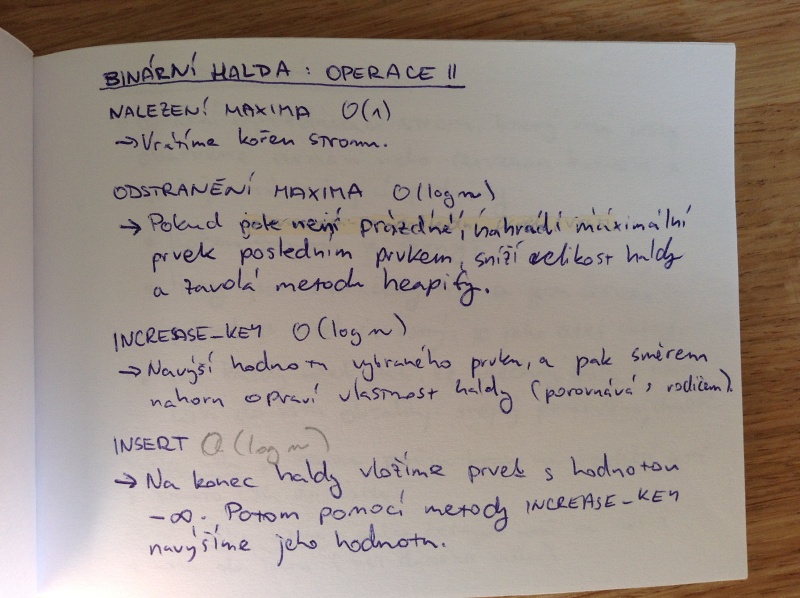 BINÁRNÍ HALDA : OPERACE II
NALEZENÍ MAXIMA O(1)
→ Vrátíme kořen stromu.
ODSTRANĚNÍ MAXIMA O(log n)
→ Pokud pole není prázdné, nahradí maximální
prvek posledním prvkem, sníží velikost haldy
a zavolá metodu heapify.
INCREASE_KEY O(log n)
→ Navýší hodnotu vybraného prvku, a pak směrem
nahoru opraví vlastnost haldy (porovnává s rodičem).
INSERT O(log n)
→ Na konec haldy vložíme prvek s hodnotou
-∞. Potom pomocí metody INCREASE_KEY
navýšíme jeho hodnotu.